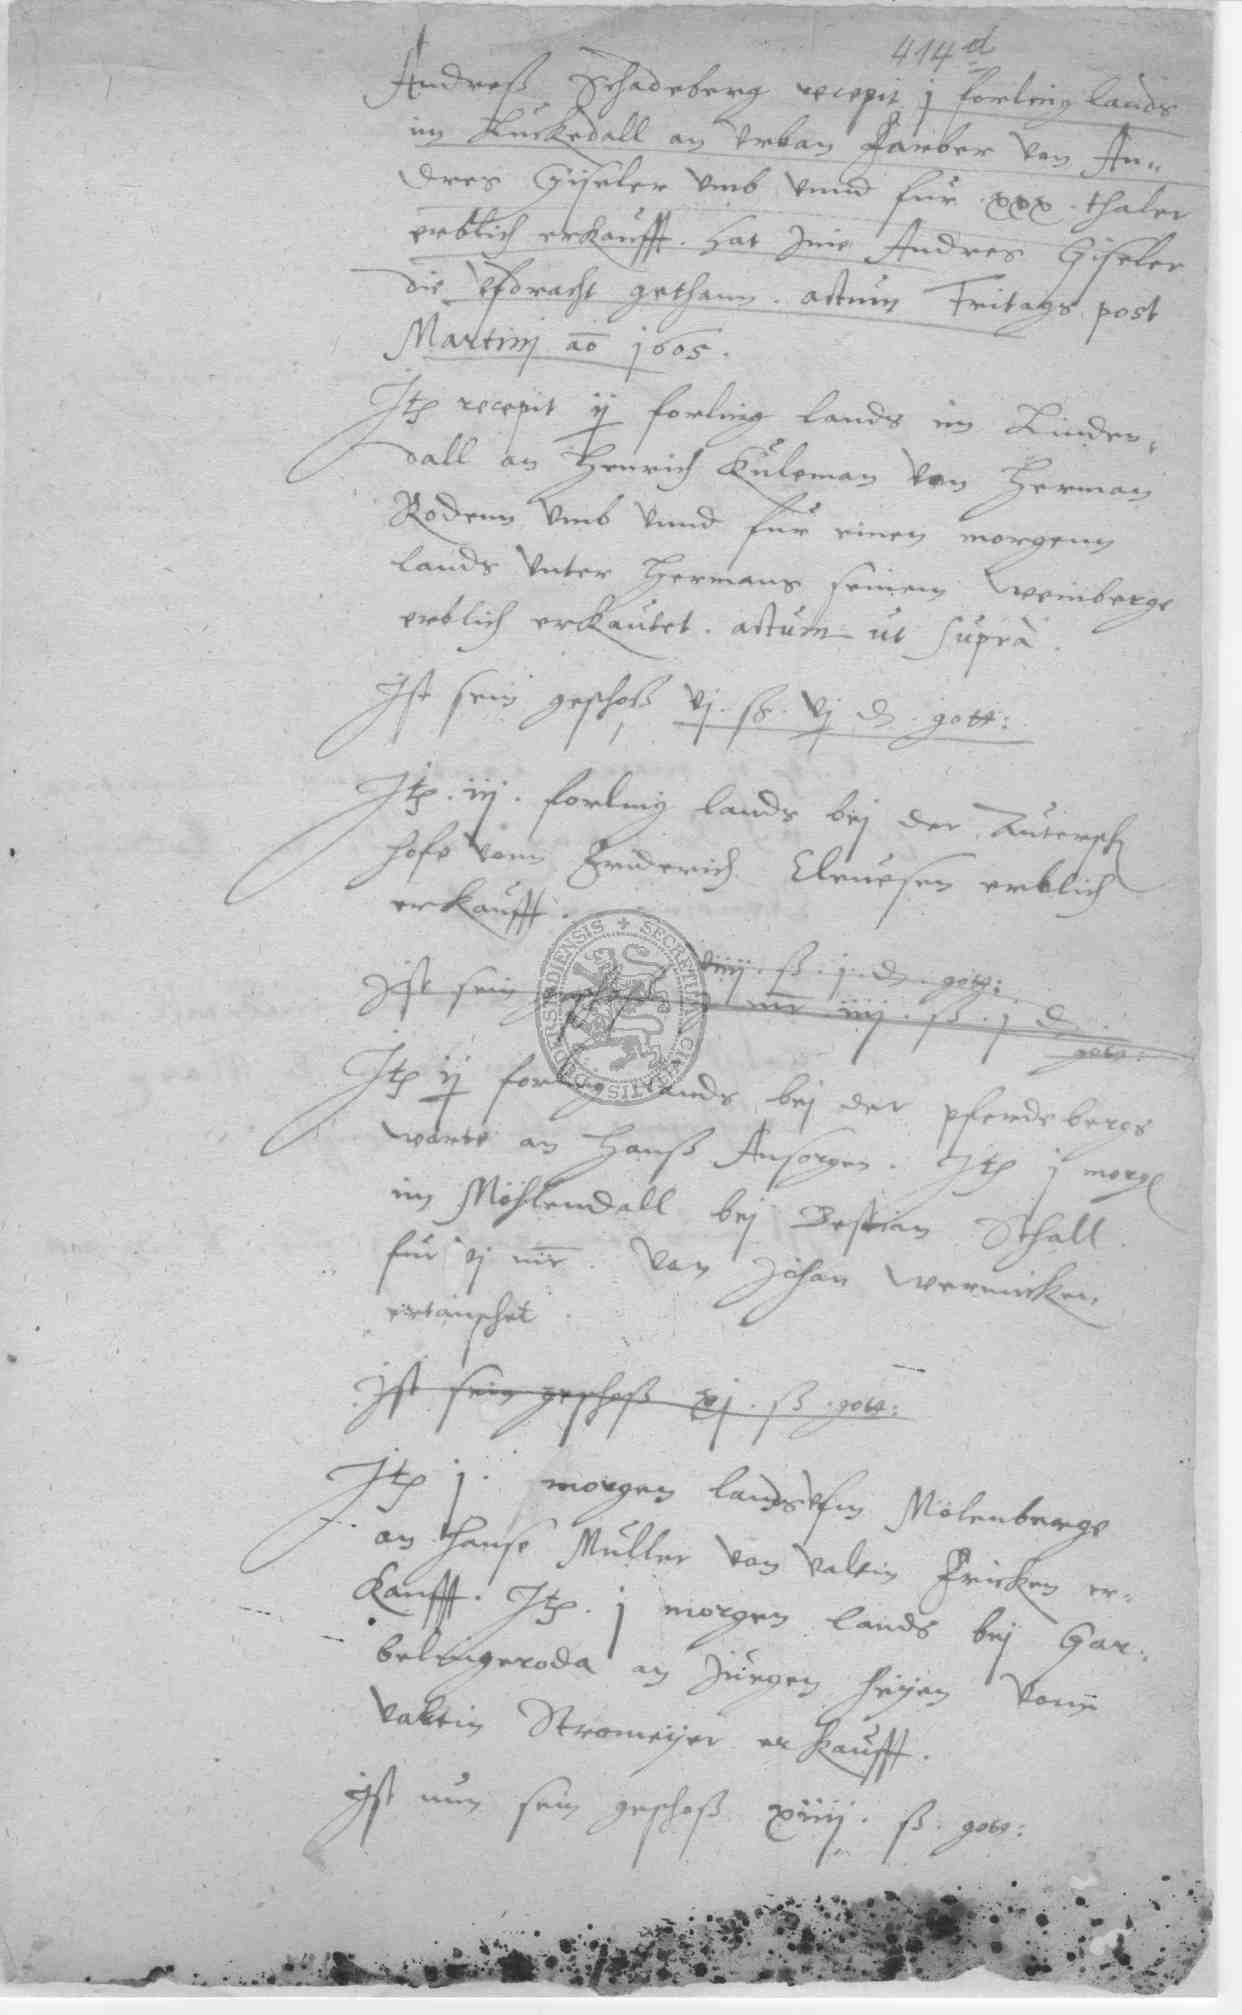 414 d
Andreß Schadeberg recepit j forling lands
im Kuckedall an Urban Farber von An-
dres Giseler umb unnd fur xxx thaler
erblich erkaufft. hat ime Andres Giseler
die ufdracht gethann. actum Fritags post
Martini ao 1605.
Itp recepit ij forling lands im Linden-
dall an Henrich Kuleman von Herman
Rodenn umb unnd fur einen morgenn
lands unter Hermans seinem weinberge
erblich erkautet. actum ut supra.
Ist sein geschoß vj. ß. vj d. gott:
Itp. iij. forling lands bej der
hofe vom Friderich Eleuesen erblich
erkaufft.
viiij. ß. j. d. gott:
Ist sein mr iiij. ß. j d
gott:
Itp ij forling lands bej der pferdsbergs
warte an Hanß Ansorgen. Itp j morg
im Mohlendall bej Bestian Schall
fur vj mr. von Johan Wernicken
ertauschet.
Ist sein geschoß xj. ß. gott:
Itp j. morgen lands ufm Molenberge
an Hanse Muller von Valtin Fricken er-
kaufft. Itp. j morgen lands bej Gar-
belingeroda an Jurgen Heijen vonn
Valtin Stromeijer erkaufft.
Ist nun sein geschoß xiiij. ß. gott:
SECRETUM CIVITATIS DUDERSTADIENSIS